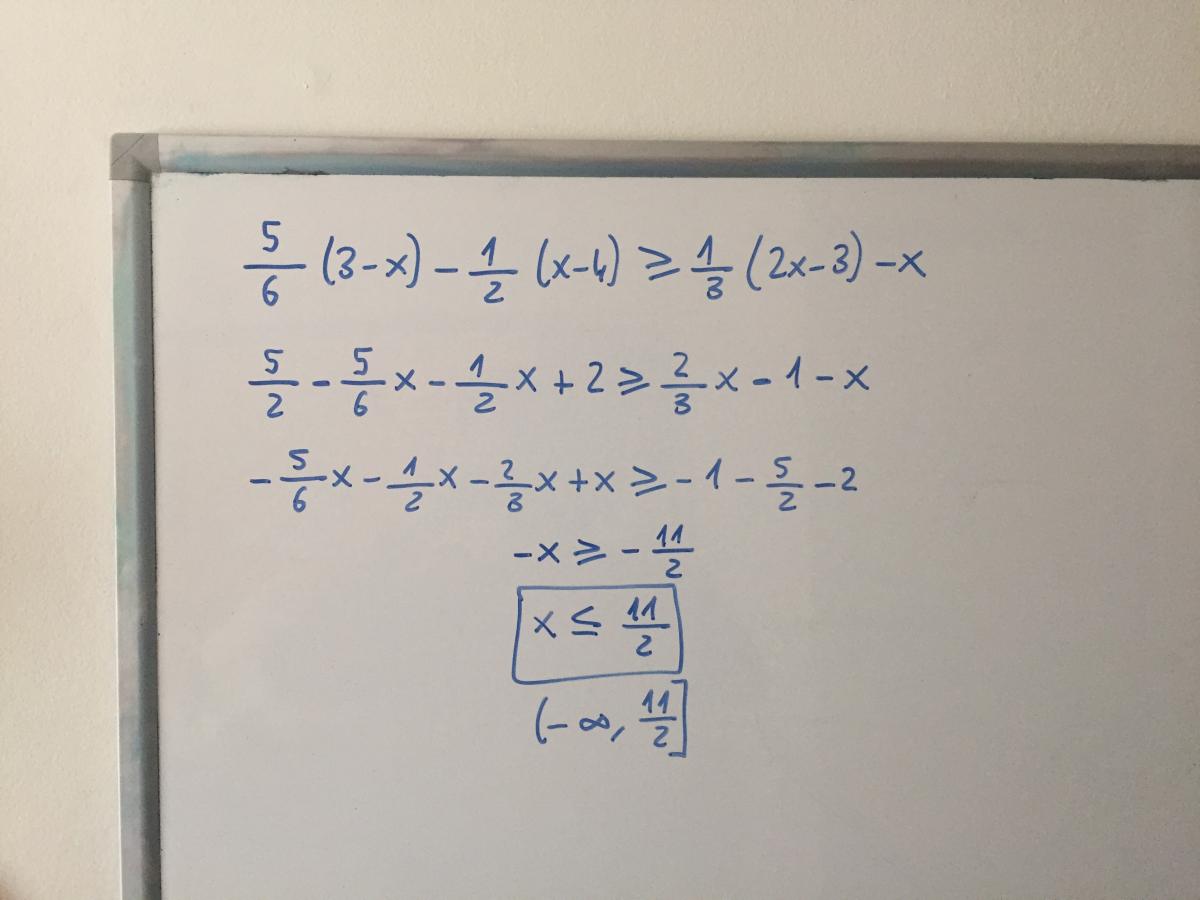 5/6 (3-x) - 1/2 (x-4) ≥ 1/3 (2x-3) - x
5/2 - 5/6 x - 1/2 x + 2 ≥ 2/3 x - 1 - x
- 5/6 x - 1/2 x - 2/3 x + x ≥ - 1 - 5/2 - 2
-x ≥ - 11/2
x ≤ 11/2
(-∞, 11/2]